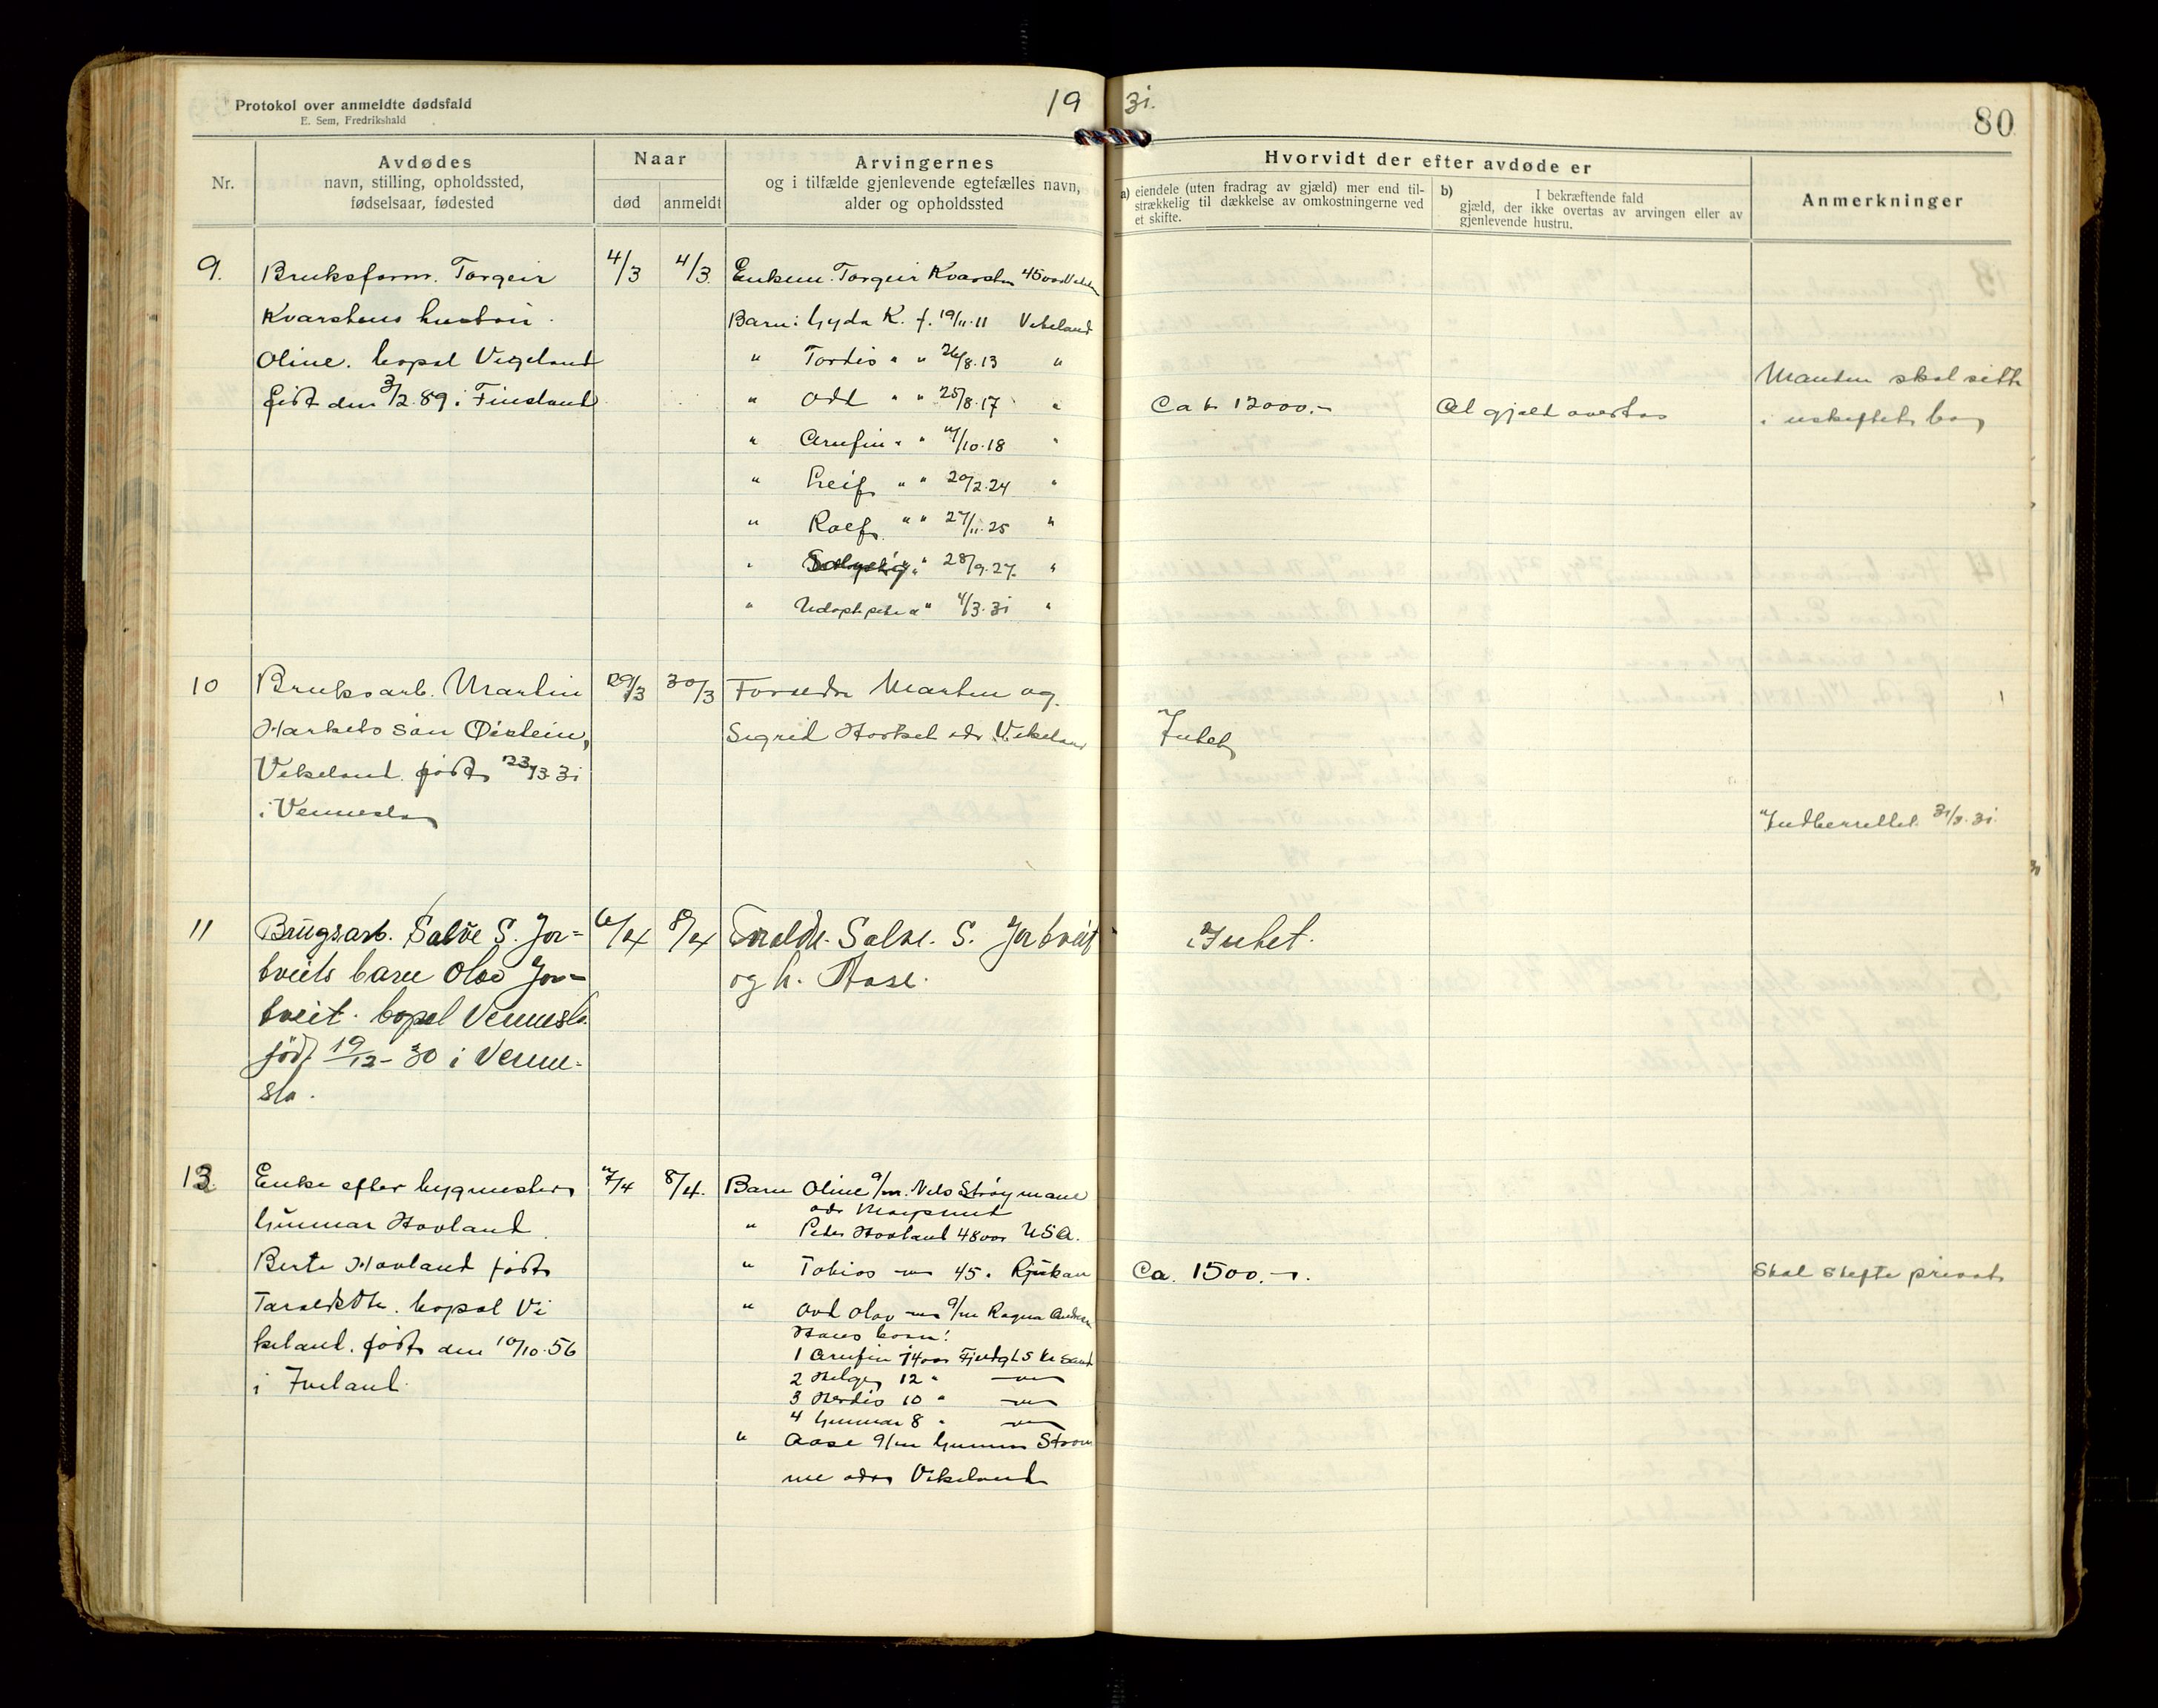 Protokol over anmeldte dødsfald
E. Sem, Fredrikshald
19 31.
80
Nr.
Avdødes
navn, stilling, opholdssted,
fødselsaar, fødested
Naar
død
anmeldt
Arvingernes
og i tilfælde gjenlevende egtefælles navn,
alder og opholdssted
Hvorvidt der efter avdøde er
a) eiendele (uten fradrag av gjæld) mer end til-
strækkelig til dækkelse av omkostningerne ved
et skifte.
b) I bekræftende fald
gjæld, der ikke overtas av arvingen eller av
gjenlevende hustru.
Anmerkninger
9.
Bruksform. Torgeir
Kvarstens hustru
Oline. bopal Vigeland
født den 3/2.89 i Finsland
4/3
4/3
Enkem. Torgeir Kvarsten 45 aar
Barn: Gyda K. f. 19/11.11 Vikeland
" Tordis " " 26/8.13 "
" Odd " " 25/8.17 "
" Arnfin " " /10.18 "
" Leif " " 20/2.24 "
" Rolf " " 27/11.25 "
" " 28/9.27. "
" Udøpt " 4/3.31 "
Ca kr 12000.-
Al gjæld overtas
Manden skal sitte
i uskiftet bo
10
Bruksarb. Martin
Harkets søn Øistein,
Vikeland. født 23/3 31
i Vennesla
29/3
30/3
Forældre Martin og
Sigrid Horket adr Vikeland
Intet
Indberettet 31/3.31.
11
Brugsarb. Salve S. Jor-
tveits barn Olav Jor-
tveit. bopel Vennesla.
född 19/12-30 i Venne-
sla.
6/4
8/4
Foreldr. Salve. S. Jortveit
og h. Aase.
Intet.
12
Enke efter bygmester
Gunnar Hovland
Berte Hovland født
Taraldsdtr. bopal Vi
keland. født den 10/10.56
i Iveland.
7/4
8/4.
Barn Oline g/m. Nels Strøymane
adr
" Peder Hovland 48 aar USA.
" Tobias — 45 " Rjukan
" Avd Olav — g/m Ragna
Hans barn:
1 Arnfin 14 aar
2 Helge 12 " —
3 Herdis 10 " —
4 Gunnar 8 " —
" Aase g/m Gunnar Strøm
me adr Vikeland
Ca. 1500.-
Skal skifte privat